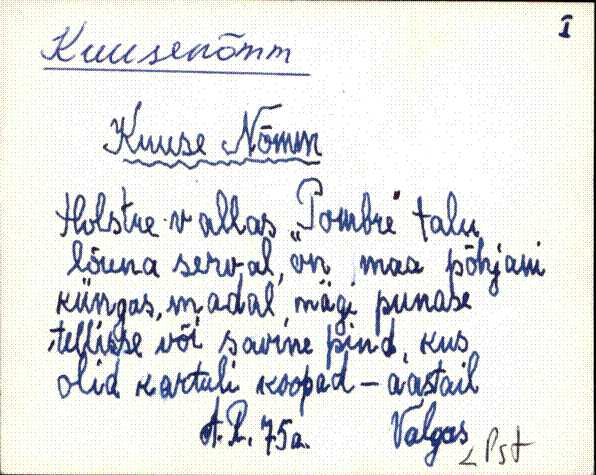 I
Kuusenõmm
Kuuse Nõmm
Holstre vallas „Pombre" talu
lõuna serval, on maa põhjani
küngas, madal mägi punase
tellisse või savine pind, kus
olid kartuli koopad – aastail
A.R. 75a. Valgas
< Pst